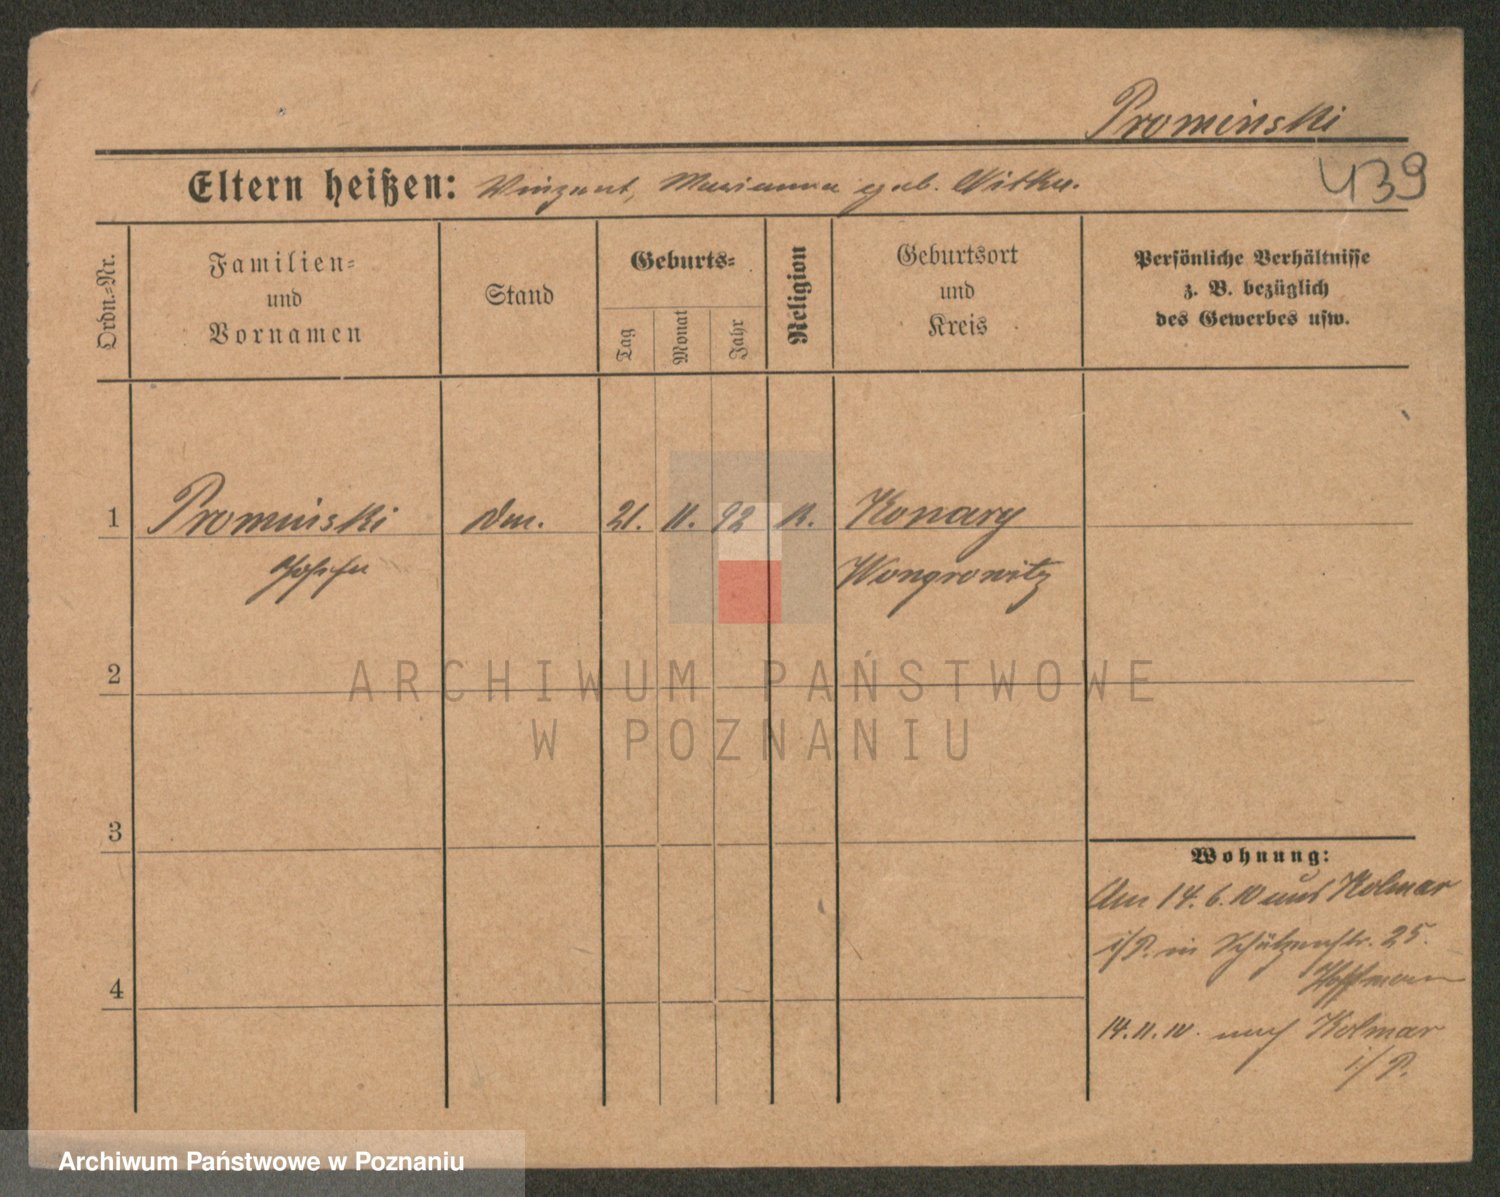 Prominski
439
Eltern heißen: Vinzent, Marianna geb. Witka.
Ordn.-Nr.
Familien-
und
Vornamen
Stand
Geburts-
Tag
Monat
Jahr
Religion
Geburtsort
und
Kreis
Persönliche Verhältnisse
z. B. bezüglich
des Gewerbes usw.
1 Prominski 21. 11. 92 K. Konary
Wongrowitz
2
3
4
Wohnung:
Am 14.6.10 aus Kolmar
i/P. in Schützenstr. 25.
Hoffmann
14.11.10. nach Kolmar
i/P.
ARCHIWUM PAŃSTWOWE
W POZNANIU
Archiwum Państwowe w Poznaniu